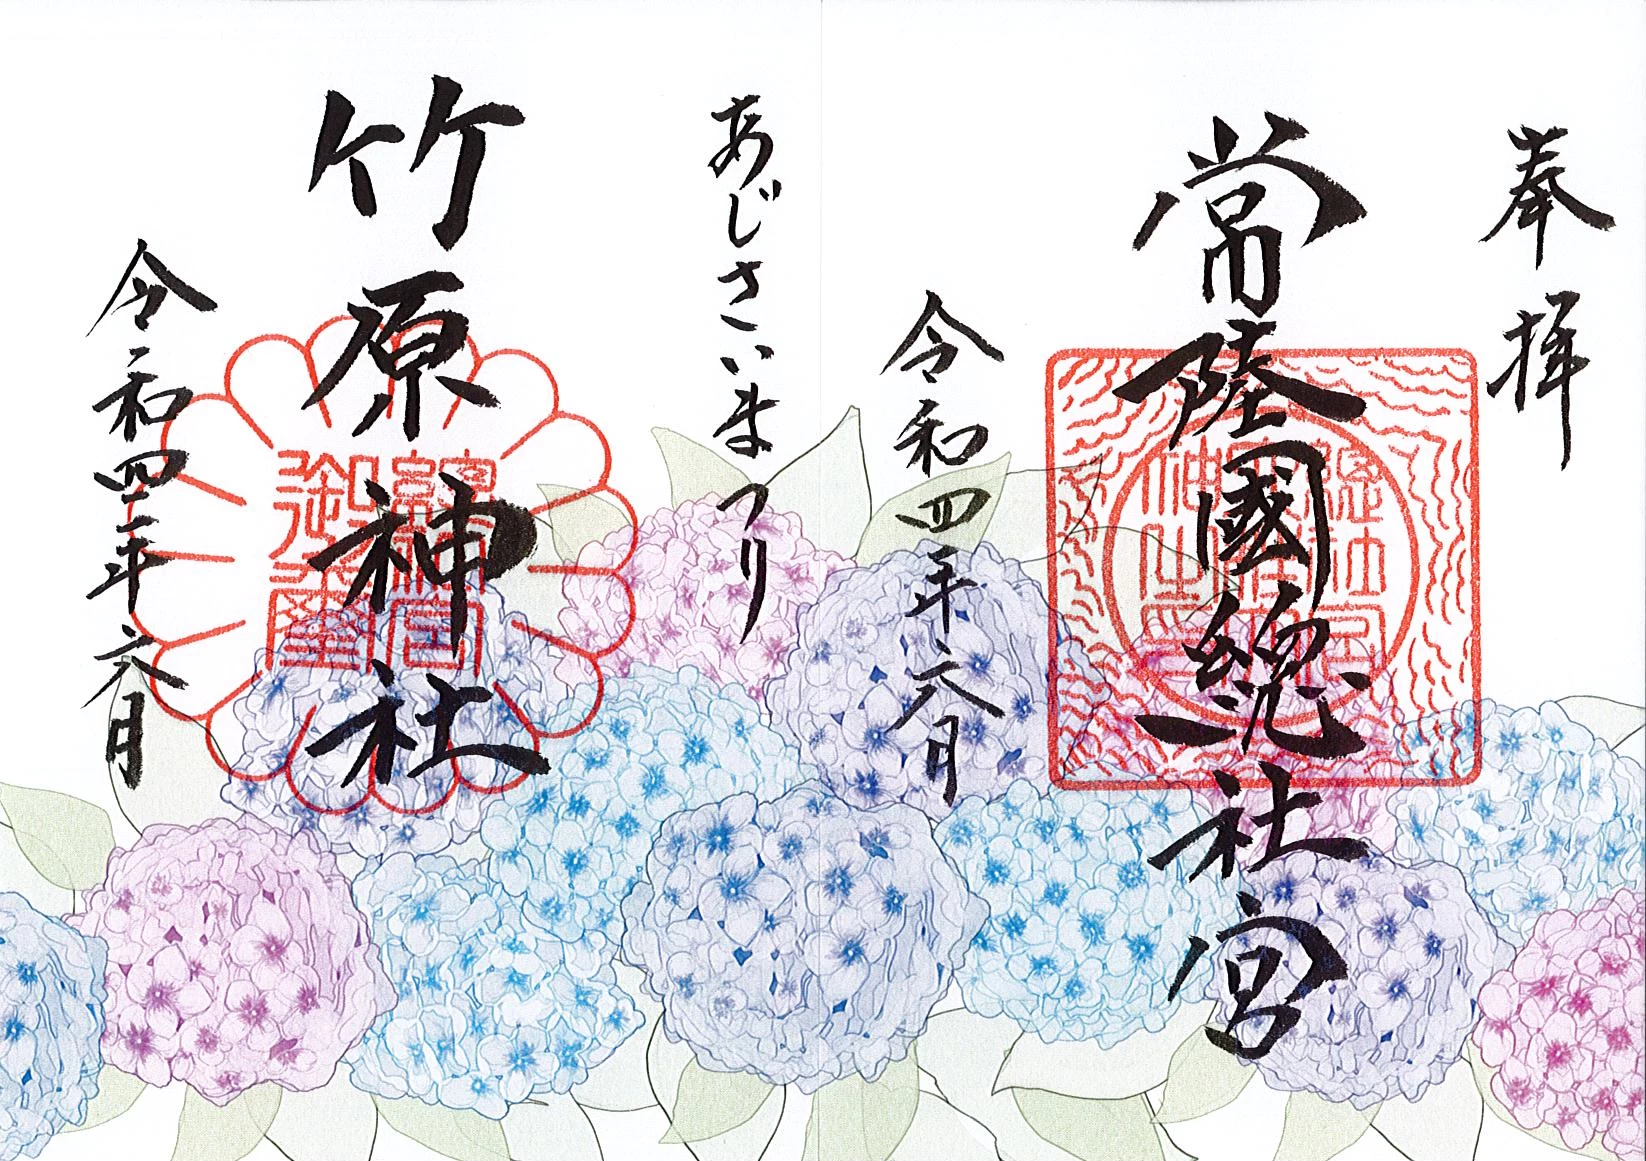 奉拝
常陸國總社宮
令和四年六月
あじさいまつり
竹原神社
令和四年六月